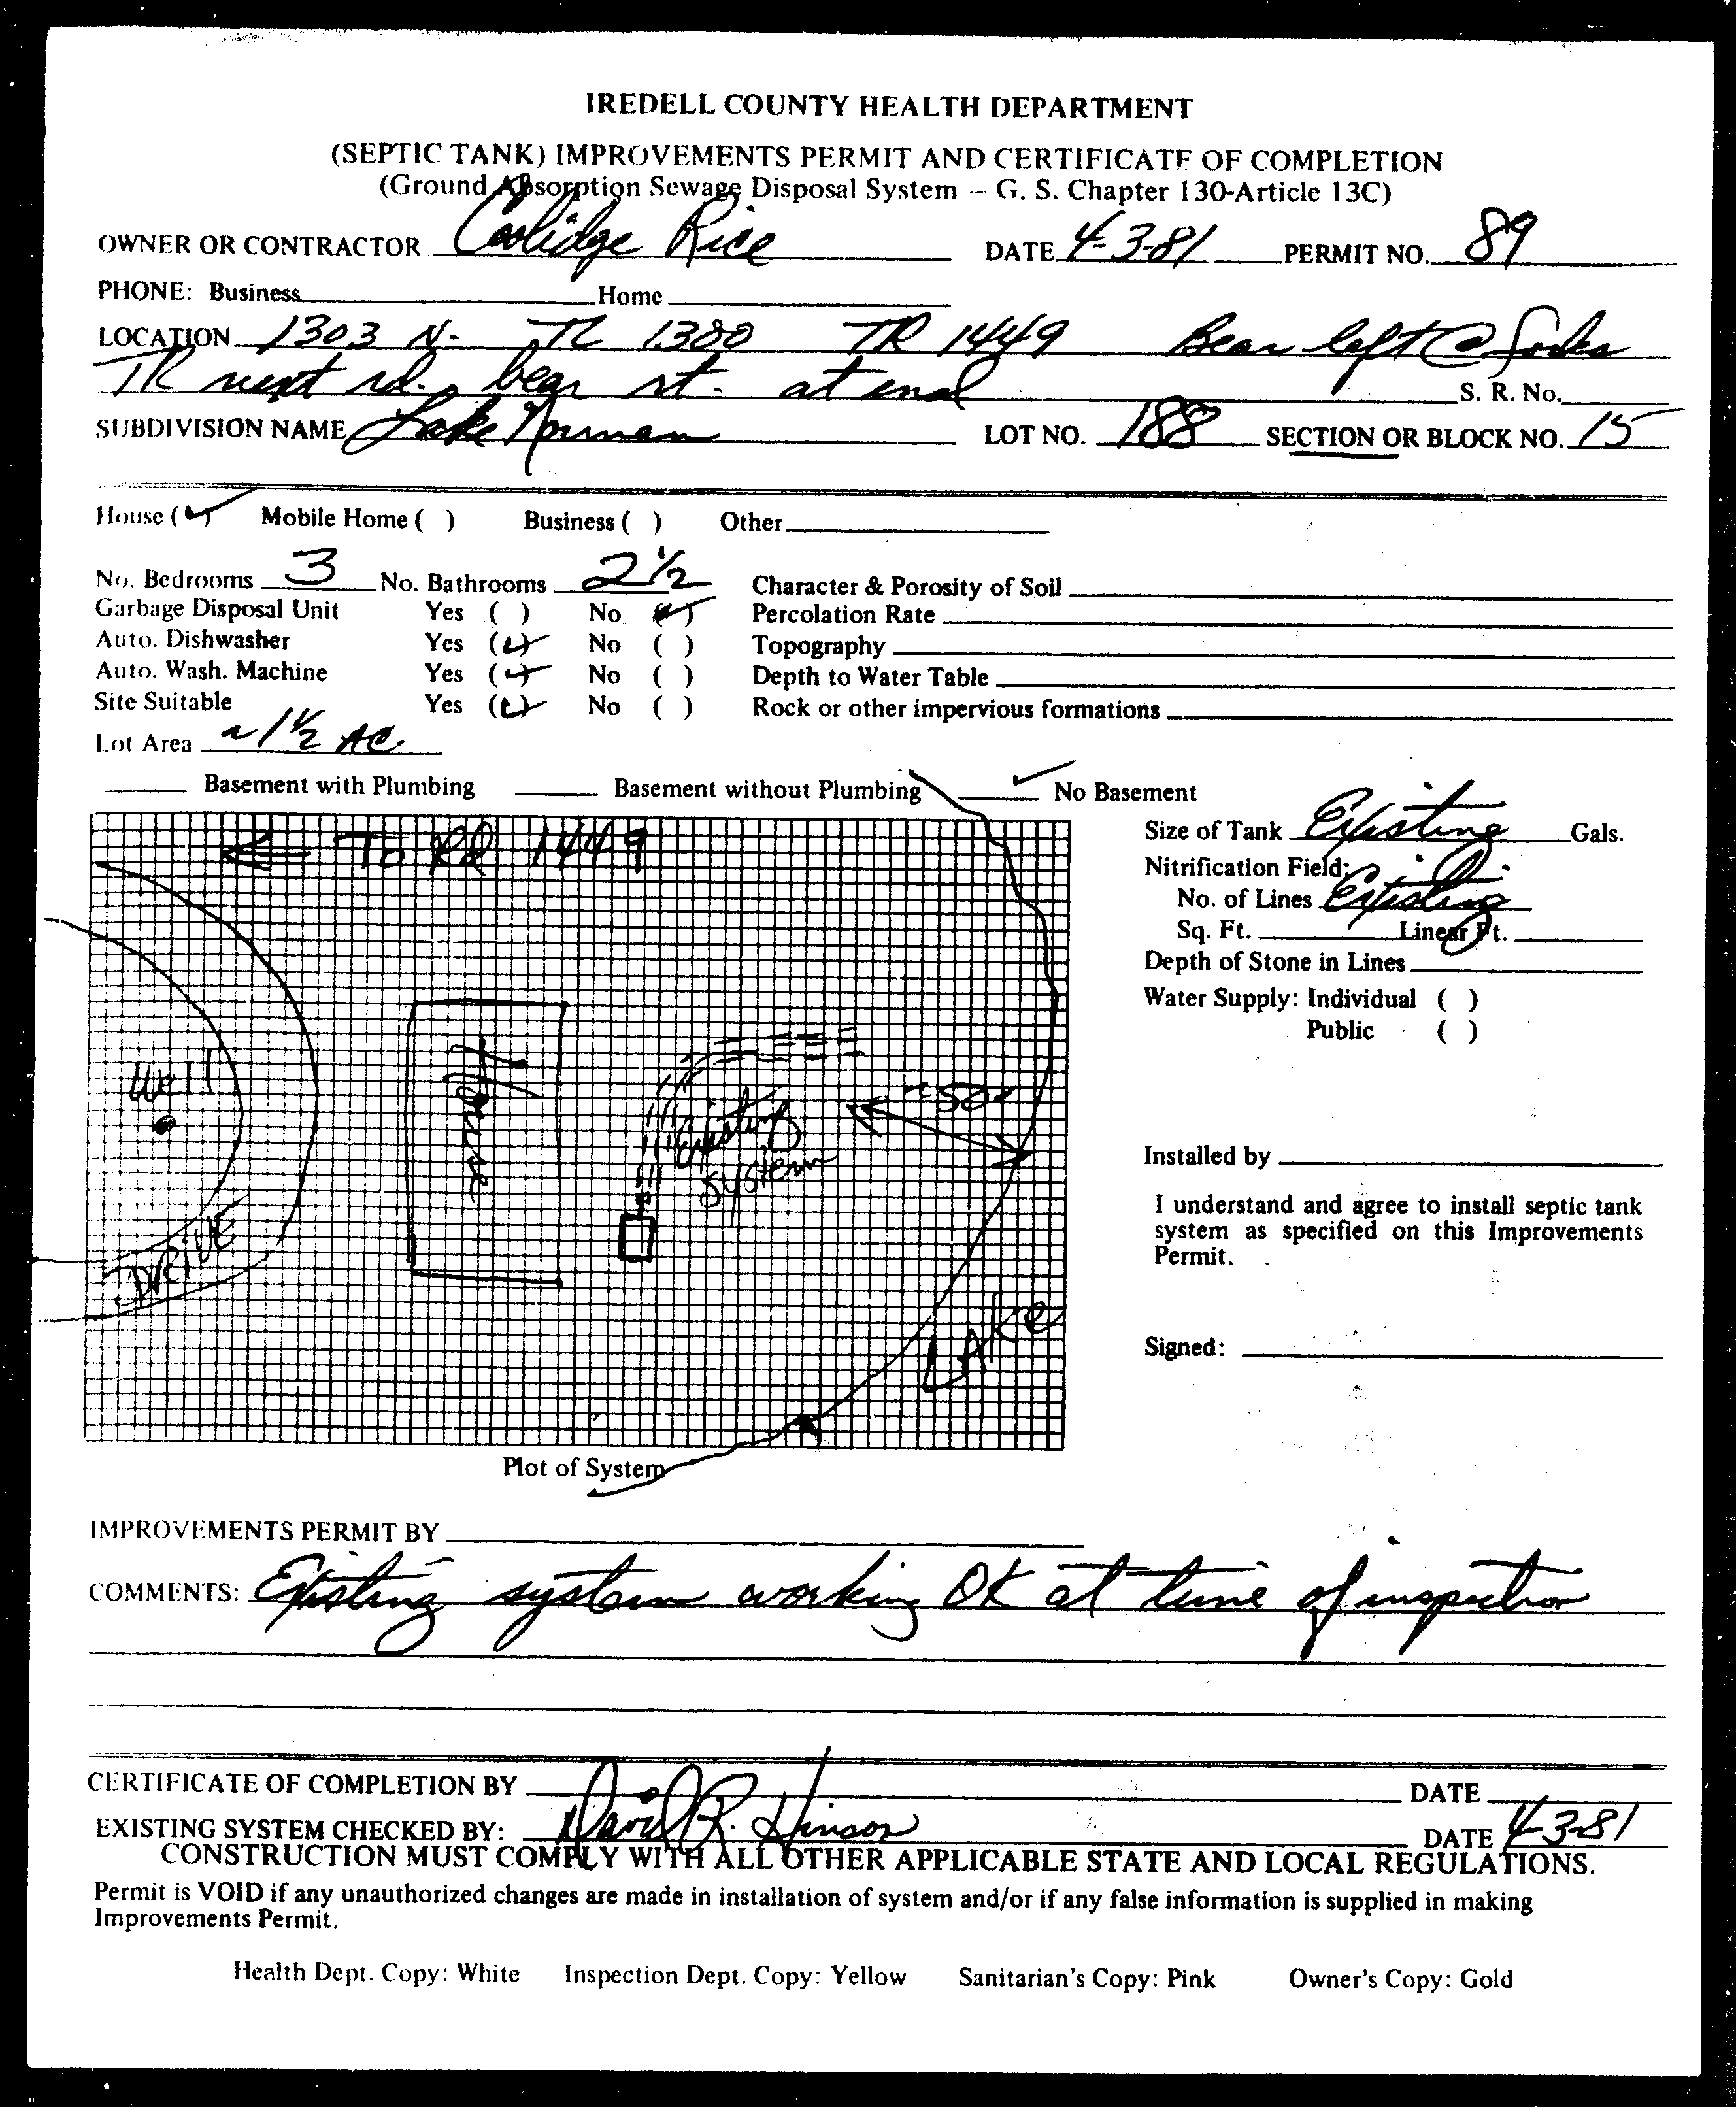 IREDELL COUNTY HEALTH DEPARTMENT
(SEPTIC TANK) IMPROVEMENTS PERMIT AND CERTIFICATE OF COMPLETION
(Ground Absorption Sewage Disposal System -- G. S. Chapter 130-Article 13C)
OWNER OR CONTRACTOR Coolidge Rice DATE 4-3-81 PERMIT NO. 89
PHONE: Business Home
LOCATION 1303 N. TL 1380 TR 1449 Bear left @ forks
TR next rd. bear rt. at end S. R. No.
SUBDIVISION NAME Lake Norman LOT NO. 188 SECTION OR BLOCK NO. 15
House (✓) Mobile Home ( ) Business ( ) Other
No. Bedrooms 3 No. Bathrooms 2 1/2 Character & Porosity of Soil
Garbage Disposal Unit Yes ( ) No (✓) Percolation Rate
Auto. Dishwasher Yes (✓) No ( ) Topography
Auto. Wash. Machine Yes (✓) No ( ) Depth to Water Table
Site Suitable Yes (✓) No ( ) Rock or other impervious formations
Lot Area ~1 1/2 AC.
Basement with Plumbing Basement without Plumbing ✓ No Basement
Size of Tank Existing Gals.
← To Rd 1449
Nitrification Field:
No. of Lines Existing
Sq. Ft. Linear Ft.
Depth of Stone in Lines
Water Supply: Individual ( )
Public ( )
Well
House
Existing
system
DRIVE
LAKE
Installed by
I understand and agree to install septic tank
system as specified on this Improvements
Permit.
Signed:
Plot of System
IMPROVEMENTS PERMIT BY
COMMENTS: Existing system working OK at time of inspection
CERTIFICATE OF COMPLETION BY DATE
EXISTING SYSTEM CHECKED BY: David R. Hinson DATE 4-3-81
CONSTRUCTION MUST COMPLY WITH ALL OTHER APPLICABLE STATE AND LOCAL REGULATIONS.
Permit is VOID if any unauthorized changes are made in installation of system and/or if any false information is supplied in making
Improvements Permit.
Health Dept. Copy: White Inspection Dept. Copy: Yellow Sanitarian's Copy: Pink Owner's Copy: Gold